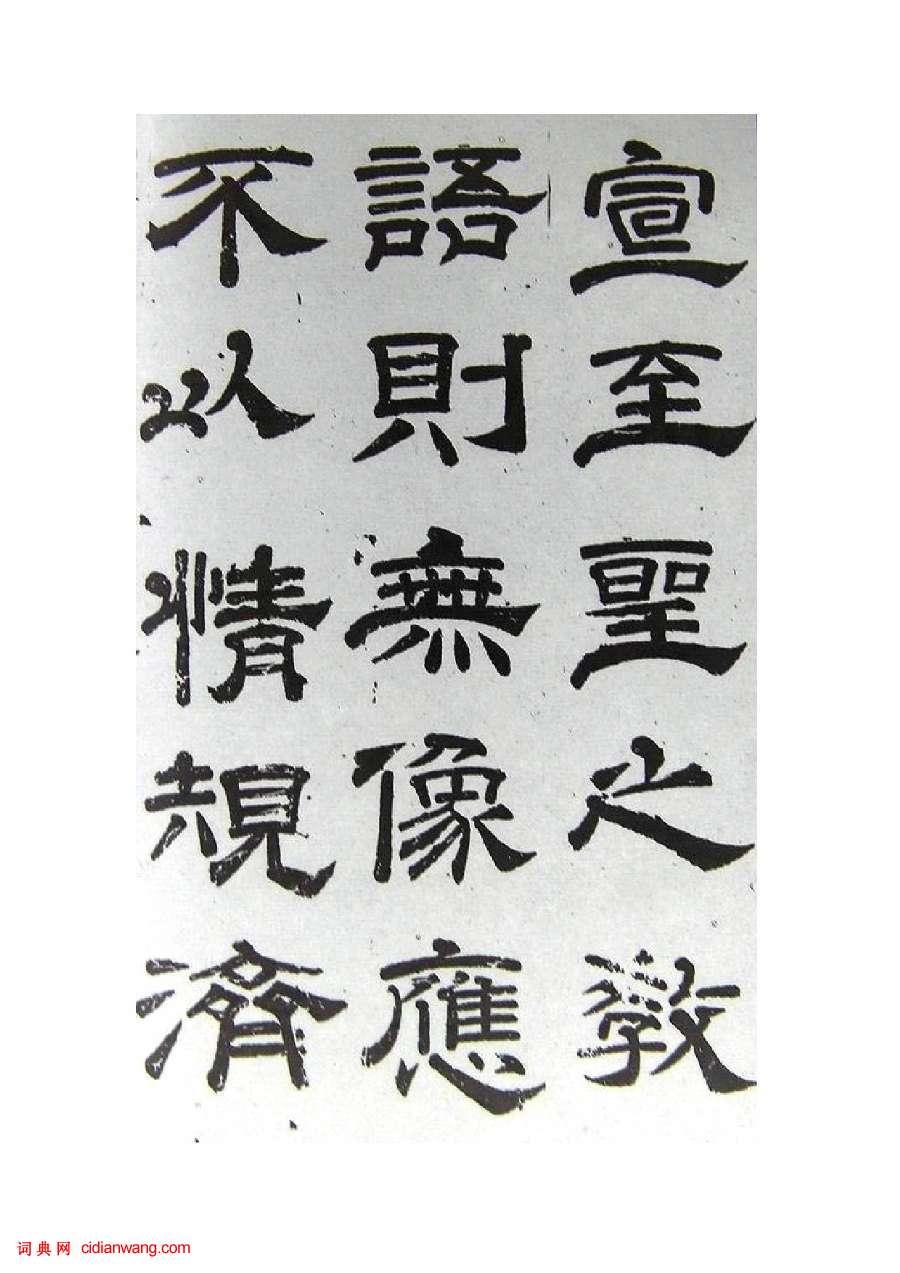 宣至聖之教
語則無像應
不以情規濟
词典网 cidianwang.com